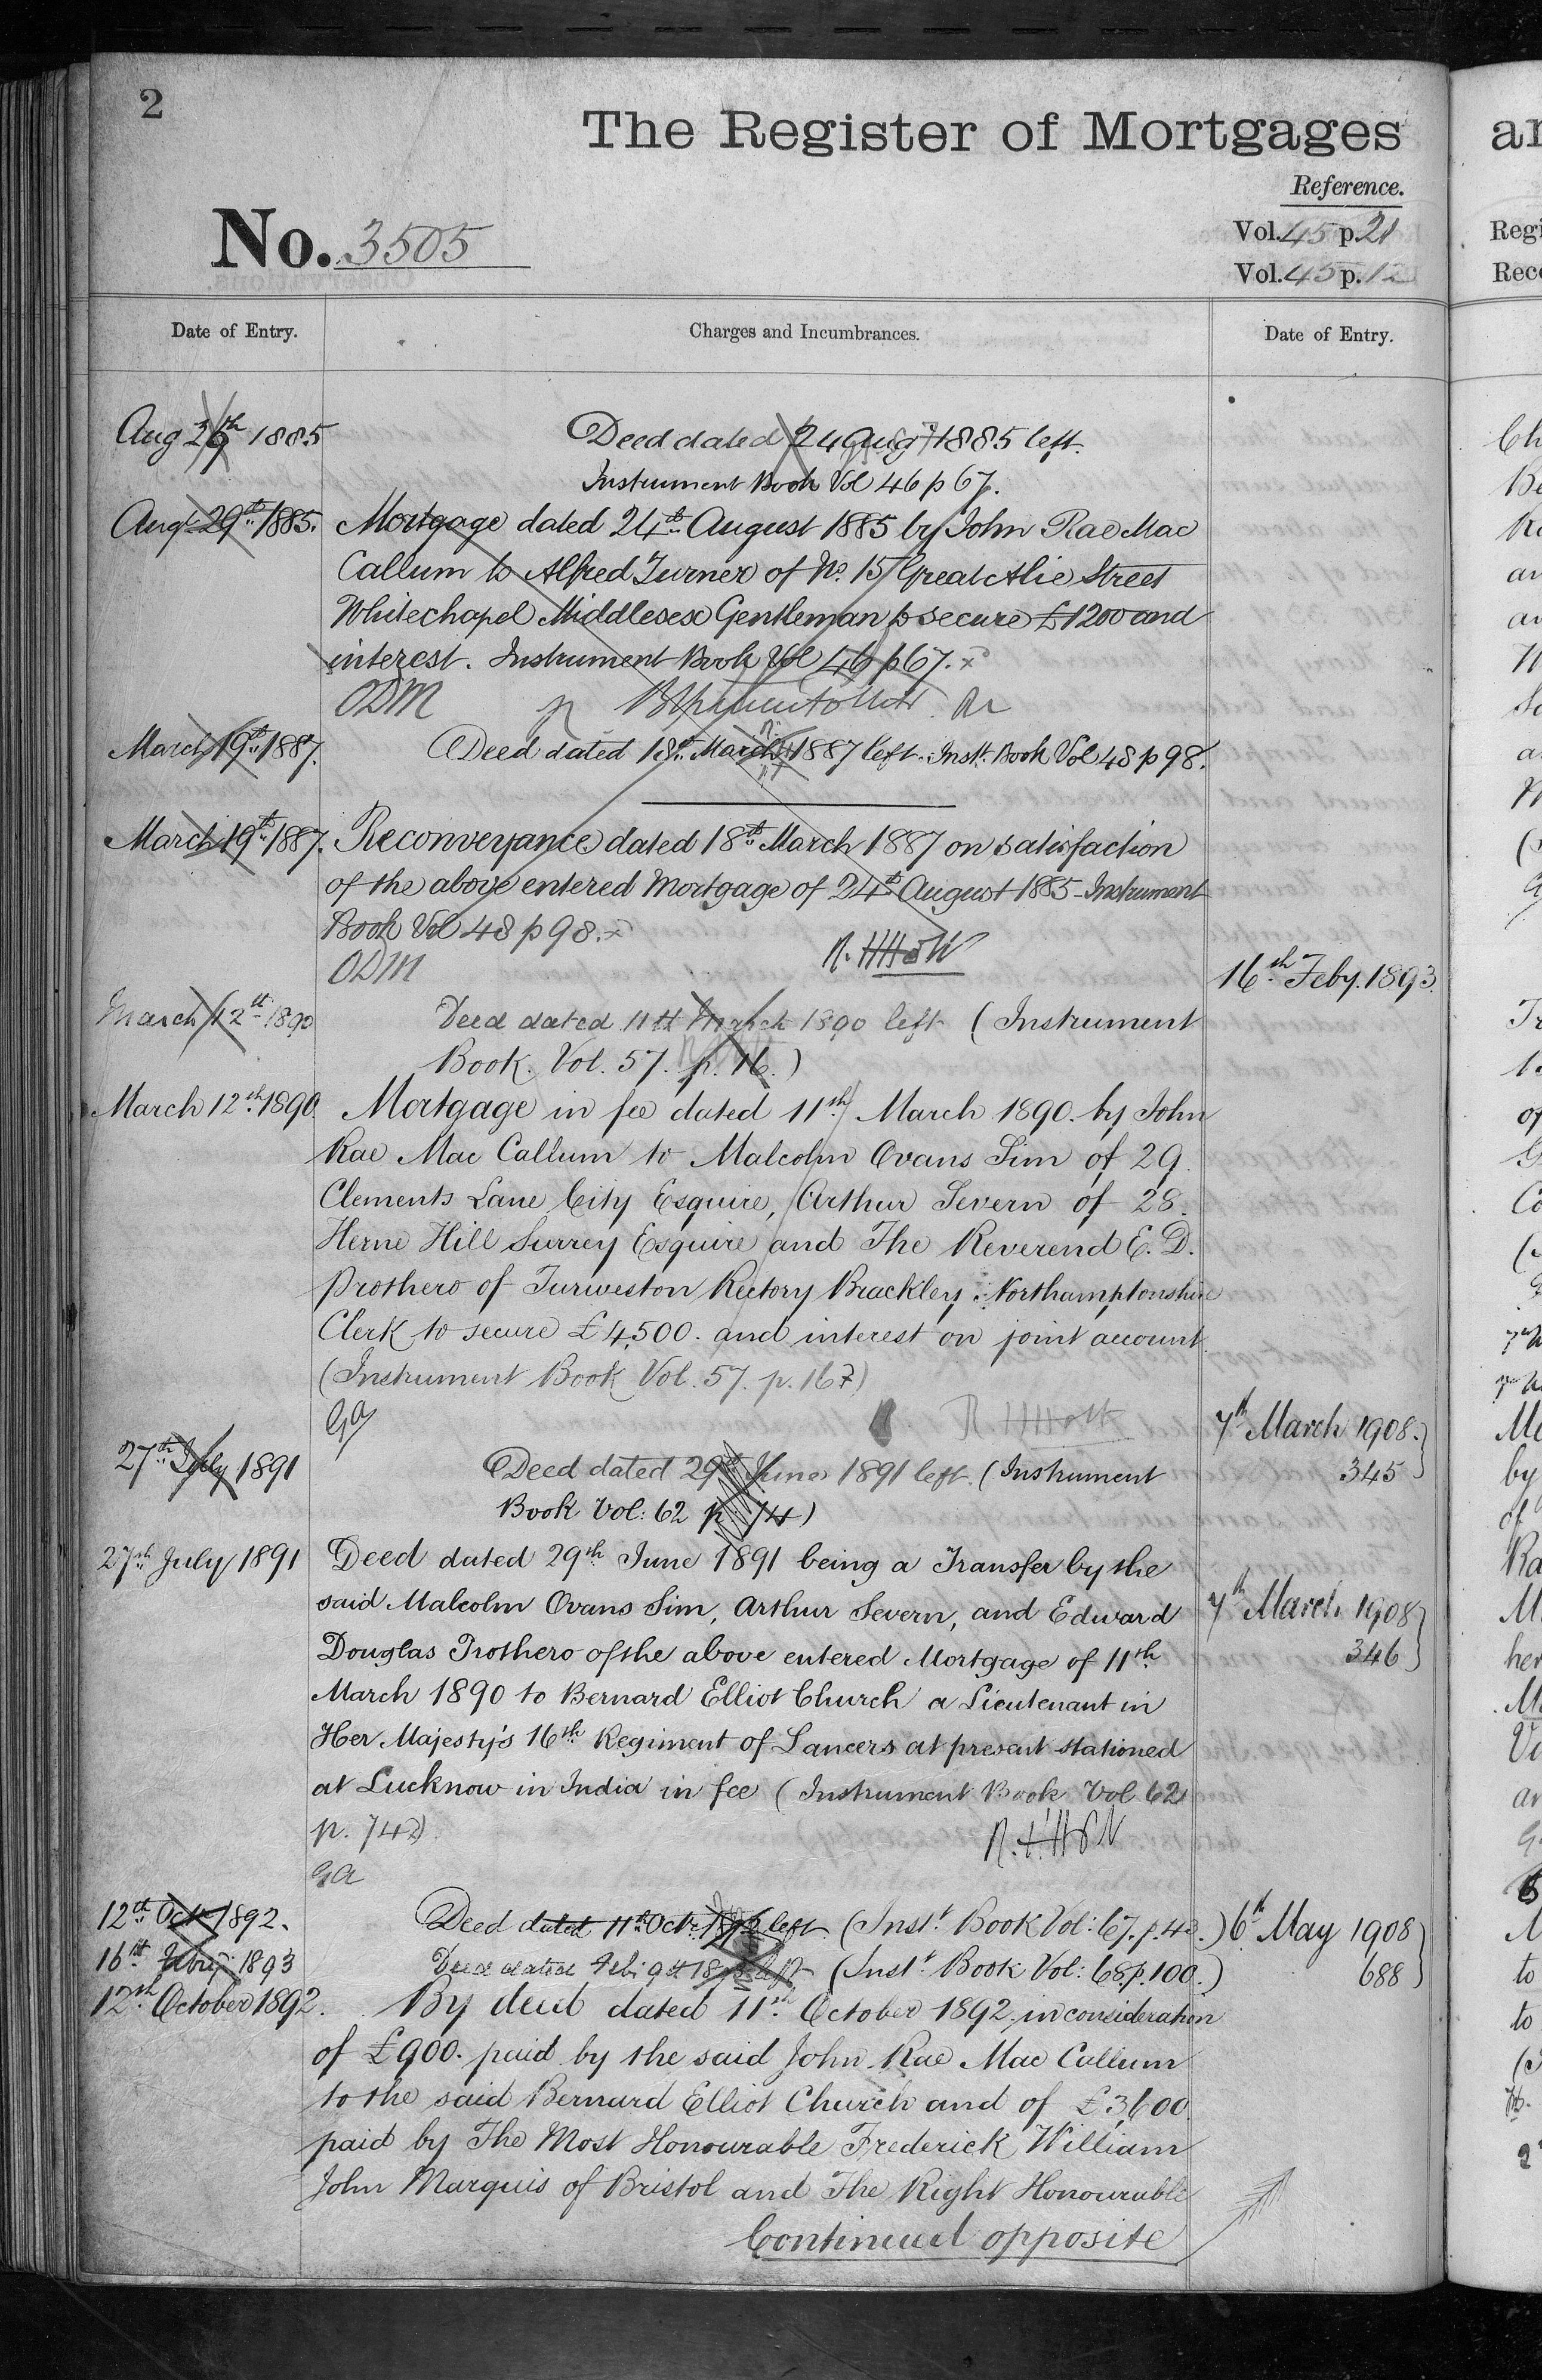 2
The Register of Mortgages
Reference.
No. 3505
Vol. 45 p. 21
Vol. 45 p. 12
Date of Entry.
Charges and Incumbrances.
Date of Entry.
Aug 1885
Deed dated 24 Aug 1885 left.
Instrument Book Vol 46 p 67.
Augt 29th 1885.
Mortgage dated 24th August 1885 by John Rae Mac
Callum to Alfred Turner of No. 15 Great Alie Street
Whitechapel Middlesex Gentleman to secure £1200 and
interest. Instrument Book Vol 46 p 67.
ODM
March 19th 1887.
Deed dated 18th March 1887 left. Inst. Book Vol 48 p 98.
March 19th 1887.
Reconveyance dated 18th March 1887 on satisfaction
of the above entered Mortgage of 24th August 1885 - Instrument
Book Vol 48 p 98.
ODM
16th Feby. 1893.
March 12th 1890
Deed dated 11th March 1890 left (Instrument
Book. Vol. 57. p. 16.)
March 12th 1890.
Mortgage in fee dated 11th March 1890. by John
Rae Mac Callum to Malcolm Ovans Sim of 29.
Clements Lane City Esquire, Arthur Severn of 28.
Herne Hill Surrey Esquire and The Reverend E. D.
Prothero of Turweston Rectory Brackley Northamptonshire
Clerk to secure £4,500. and interest on joint account.
(Instrument Book Vol. 57. p. 16)
Ga
7th March 1908.
345
27th July 1891
Deed dated 29th June 1891 left. (Instrument
Book Vol: 62 p. 74)
27th July 1891
Deed dated 29th June 1891 being a Transfer by the
said Malcolm Ovans Sim, Arthur Severn, and Edward
7th March 1908
Douglas Prothero of the above entered Mortgage of 11th
346
March 1890 to Bernard Elliot Church a Lieutenant in
Her Majesty's 16th Regiment of Lancers at present stationed
at Lucknow in India in fee (Instrument Book Vol 62
p. 74)
Ga
12th Octr 1892.
Deed dated 11th Octr. 1892 left (Inst. Book Vol: 67. p. 43.)
6th May 1908
688
16th Feby. 1893
Deed dated Feb: 9th 1893 left (Inst. Book Vol: 68 p. 100.)
12th October 1892.
By deed dated 11th October 1892, in consideration
of £900. paid by the said John Rae Mac Callum
to the said Bernard Elliot Church and of £3,600.
paid by The Most Honourable Frederick William
John Marquis of Bristol and The Right Honourable
Continued opposite